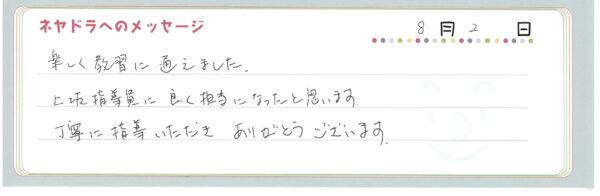 ネヤドラへのメッセージ
8月2日
楽しく教習に通えました。
上坂指導員に良く担当になったと思います。
丁寧に指導いただき ありがとうございます。